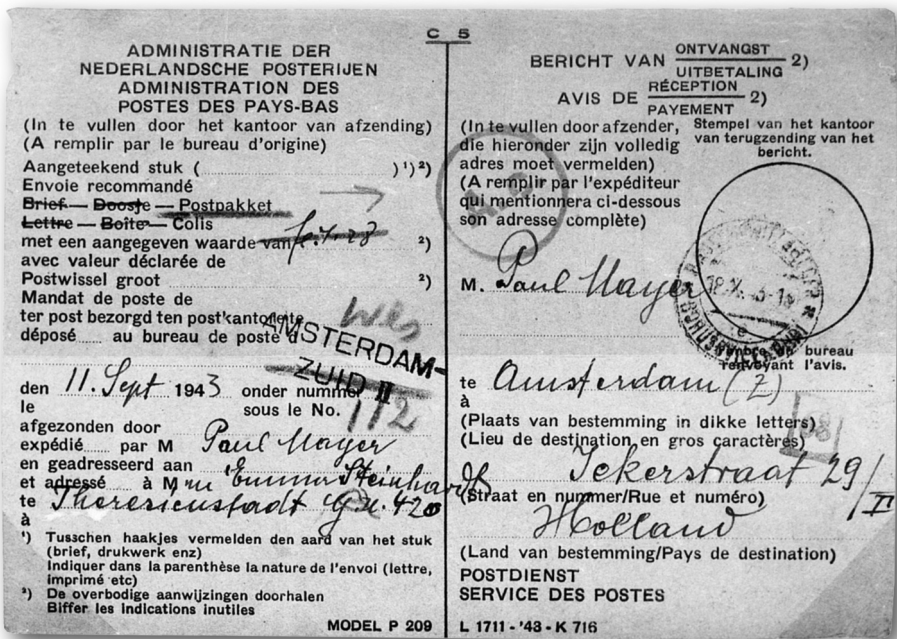 C 5
ADMINISTRATIE DER
NEDERLANDSCHE POSTERIJEN
ADMINISTRATION DES
POSTES DES PAYS-BAS
(In te vullen door het kantoor van afzending)
(A remplir par le bureau d'origine)
Aangeteekend stuk ( )¹)²)
Envoie recommandé
Brief — Doosje — Postpakket
Lettre — Boîte — Colis
met een aangegeven waarde van ²)
avec valeur déclarée de
Postwissel groot ²)
Mandat de poste de
ter post bezorgd ten post'kantore te
déposé au bureau de poste d
AMSTERDAM-
ZUID II
den 11. Sept 1943 onder nummer
le sous le No. 112
afgezonden door
expédié par M Paul Mayer
en geadresseerd aan
et adressé à M me Emma Steinhardt
te Theresienstadt
à
¹) Tusschen haakjes vermelden den aard van het stuk
(brief, drukwerk enz)
Indiquer dans la parenthèse la nature de l'envoi (lettre,
imprimé etc)
²) De overbodige aanwijzingen doorhalen
Biffer les indications inutiles
MODEL P 209
BERICHT VAN ONTVANGST / UITBETALING 2)
AVIS DE RÉCEPTION / PAYEMENT 2)
(In te vullen door afzender,
die hieronder zijn volledig
adres moet vermelden)
(A remplir par l'expéditeur
qui mentionnera ci-dessous
son adresse complète)
Stempel van het kantoor
van terugzending van het
bericht.
M. Paul Mayer
bureau
renvoyant l'avis.
te Amsterdam (Z)
à
(Plaats van bestemming in dikke letters)
(Lieu de destination en gros caractères)
Jekerstraat 29/II
(Straat en nummer/Rue et numéro)
Holland
(Land van bestemming/Pays de destination)
POSTDIENST
SERVICE DES POSTES
L 1711 - '43 - K 716